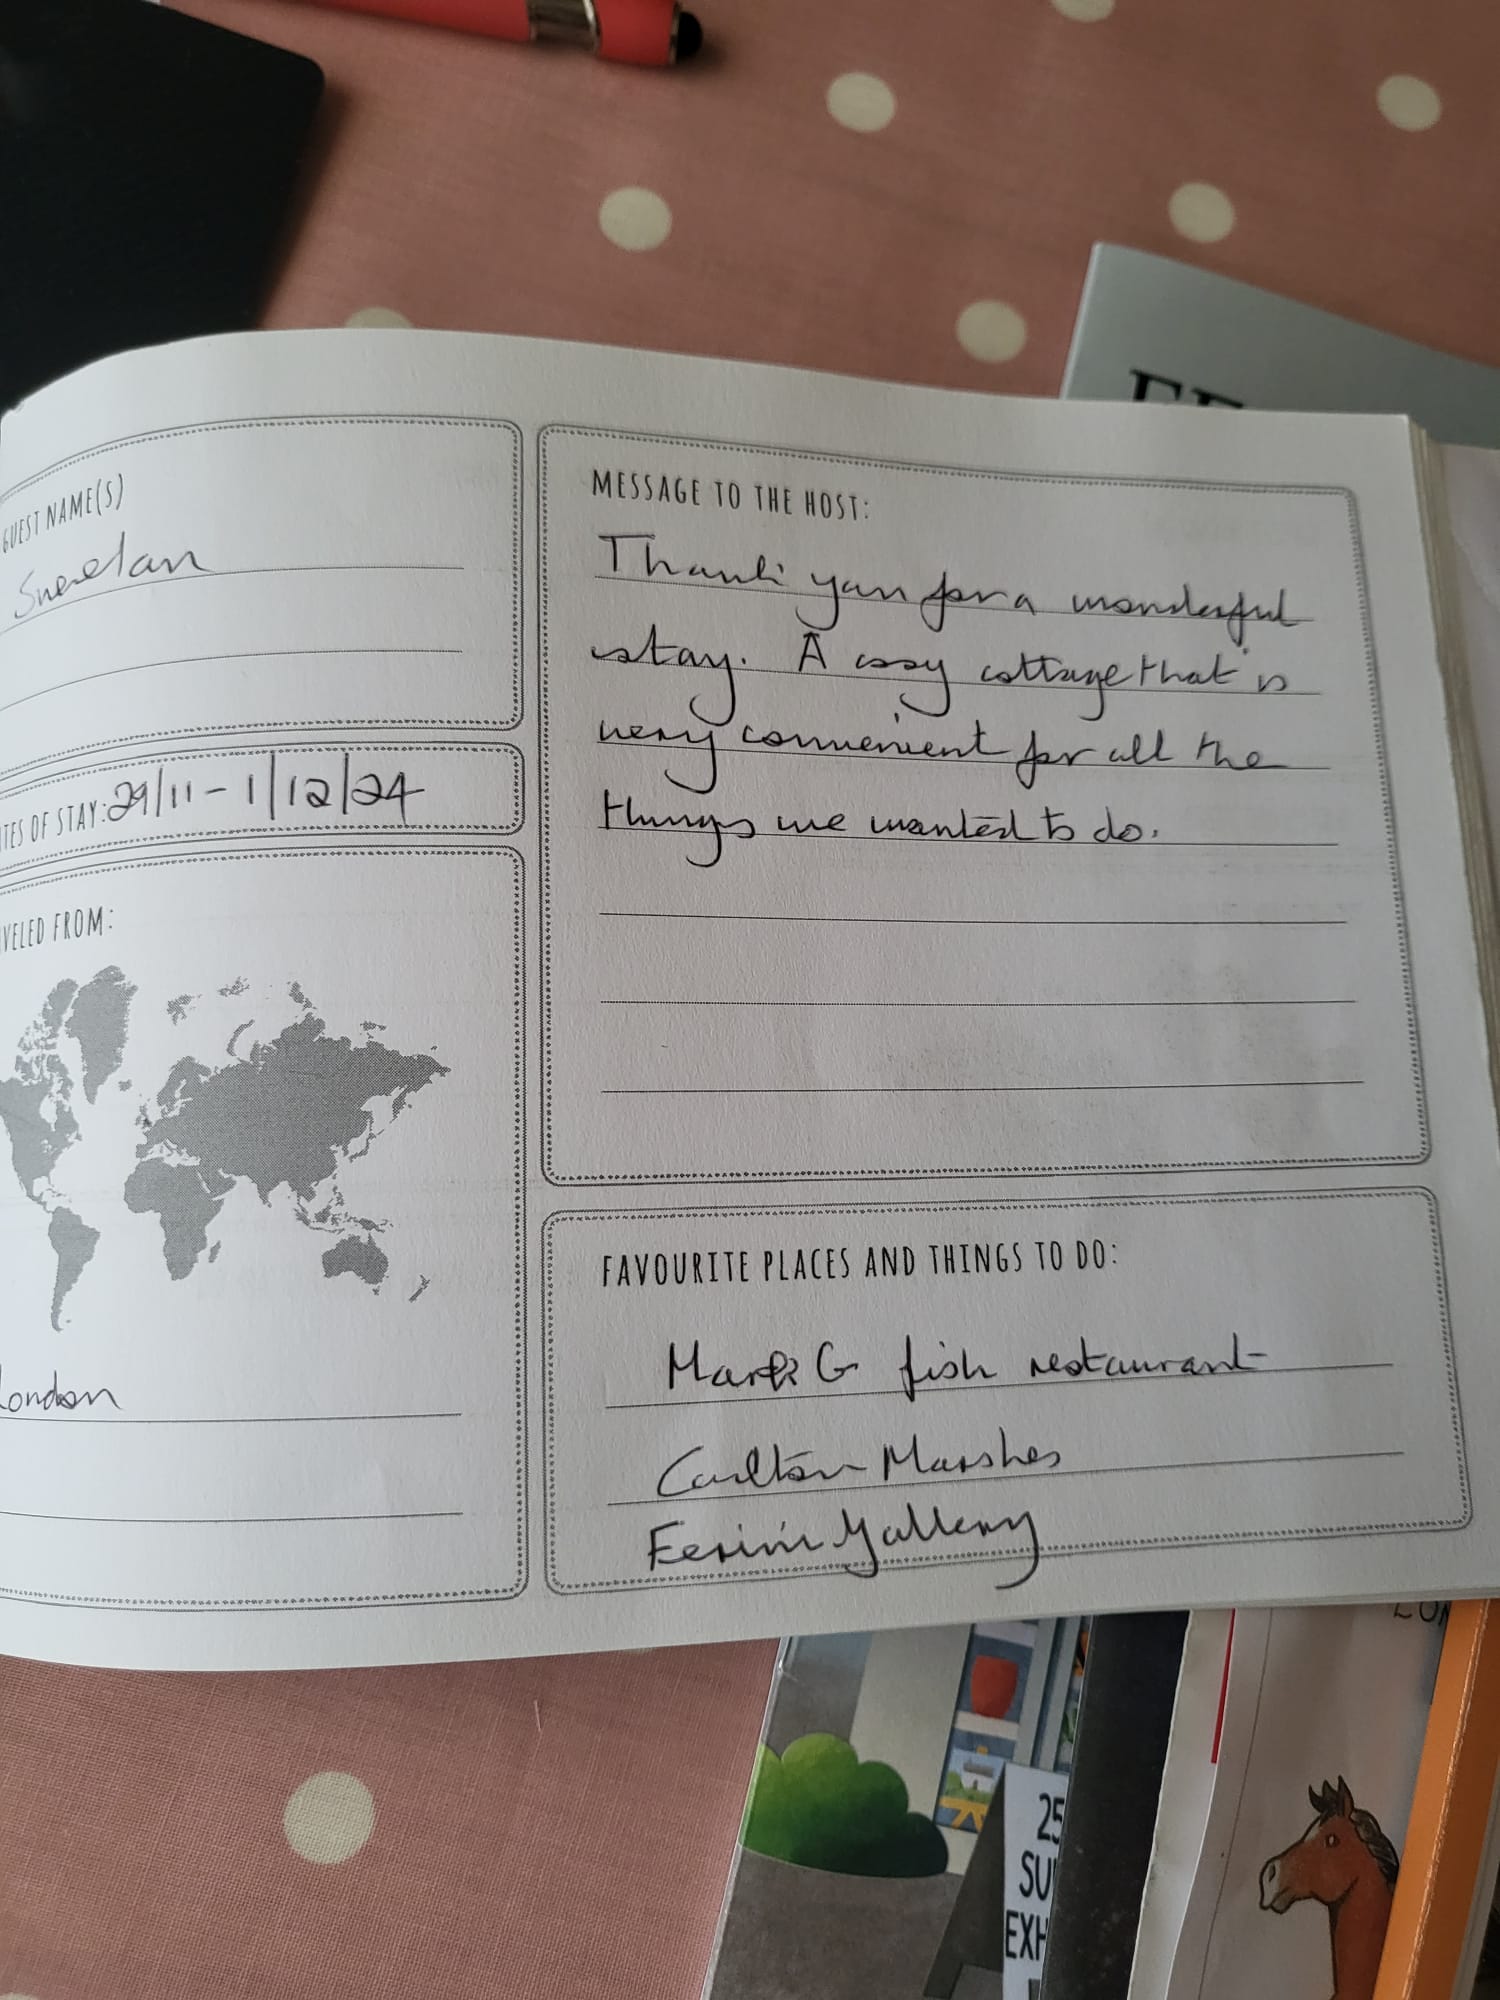 GUEST NAME(S)
DATES OF STAY: 29/11 - 1/12/24
VELED FROM:
London
MESSAGE TO THE HOST:
Thank you for a wonderful
stay. A cosy cottage that is
very convenient for all the
things we wanted to do.
FAVOURITE PLACES AND THINGS TO DO:
Mark G fish restaurant
Carlton Marshes
Ferini Gallery
25
SU
EXH